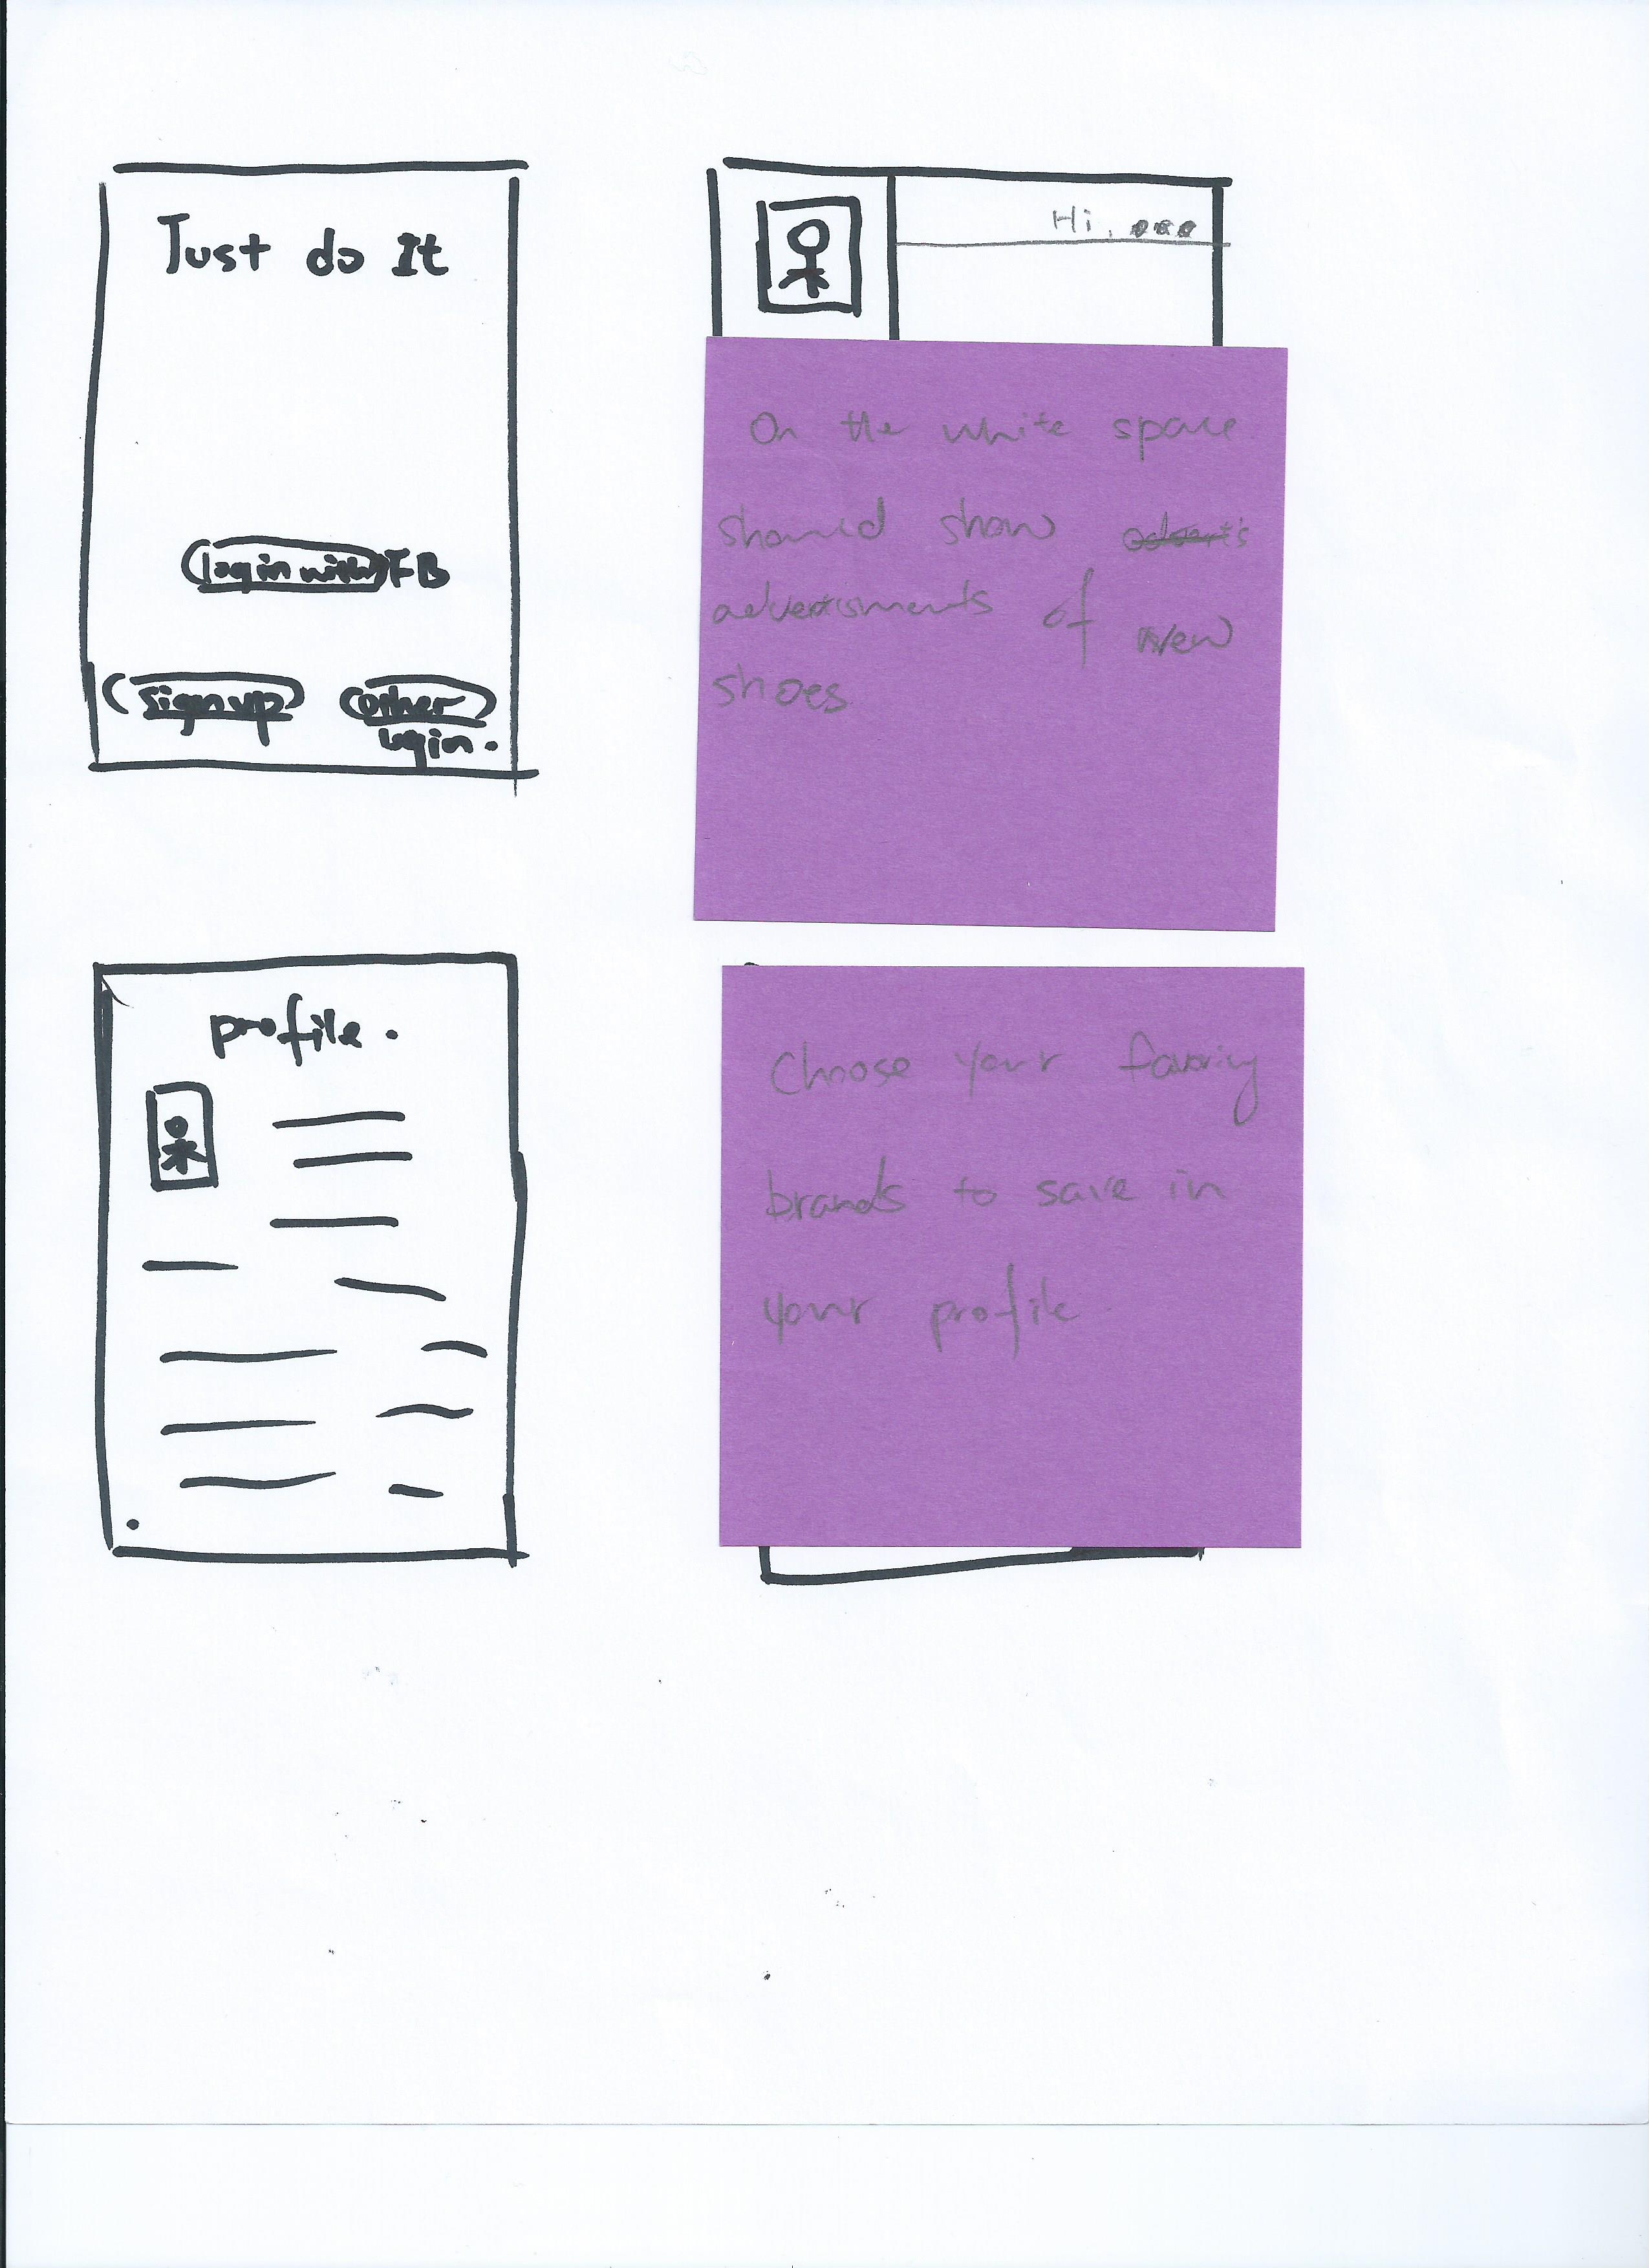 Just do It
login with FB
sign up
other
login.
Hi,
On the white space
should show
advertisments of New
shoes
profile.
Choose your
brands to save in
your profile